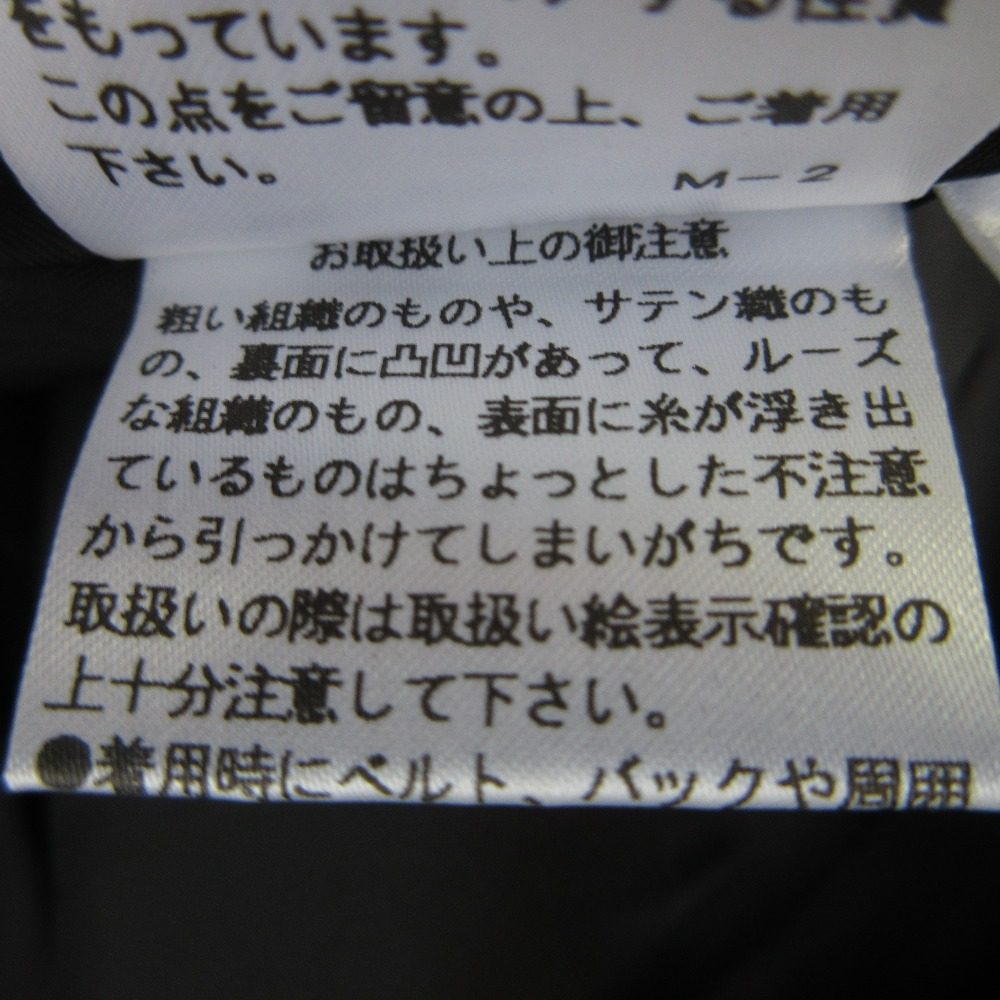 する性質
をもっています。
この点をご留意の上、ご着用
下さい。
M-2
お取扱い上の御注意
粗い組織のものや、サテン織のも
の、裏面に凸凹があって、ルーズ
な組織のもの、表面に糸が浮き出
ているものはちょっとした不注意
から引っかけてしまいがちです。
取扱いの際は取扱い絵表示確認の
上十分注意して下さい。
●着用時にベルト、バックや周囲